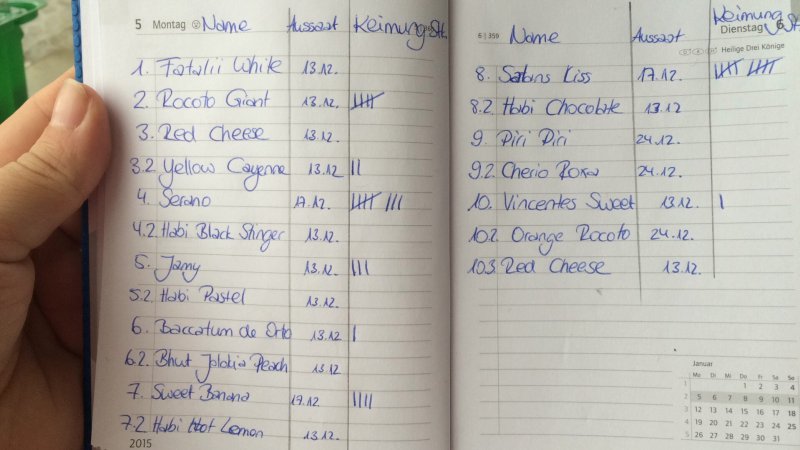 5 Montag Name Aussaat Keimung Stk.
1. Fatalii White 13.12.
2. Rocoto Giant 13.12. 卌
3. Red Cheese 13.12.
3.2 Yellow Cayenne 13.12 ||
4. Serano 17.12. 卌 |||
4.2. Habi Black Stinger 13.12.
5. Jamy 13.12. |||
5.2. Habi Pastel 13.12.
6. Baccatum de Orto 13.12 |
6.2. Bhut Jolokia Peach 13.12
7. Sweet Banana 17.12 ||||
7.2 Habi Hot Lemon 13.12.
2015
6 | 359 Name Aussaat Keimung Stk.
Dienstag 6
Heilige Drei Könige
8. Satans Kiss 17.12. 卌 卌
8.2. Habi Chocolate 13.12
9. Piri Piri 24.12.
9.2. Cherio Roxa 24.12.
10. Vincentes Sweet 13.12 |
10.2. Orange Rocoto 24.12.
10.3. Red Cheese 13.12.
Januar
Mo Di Mi Do Fr Sa So
1 1 2 3 4
2 5 6 7 8 9 10 11
3 12 13 14 15 16 17 18
4 19 20 21 22 23 24 25
5 26 27 28 29 30 31